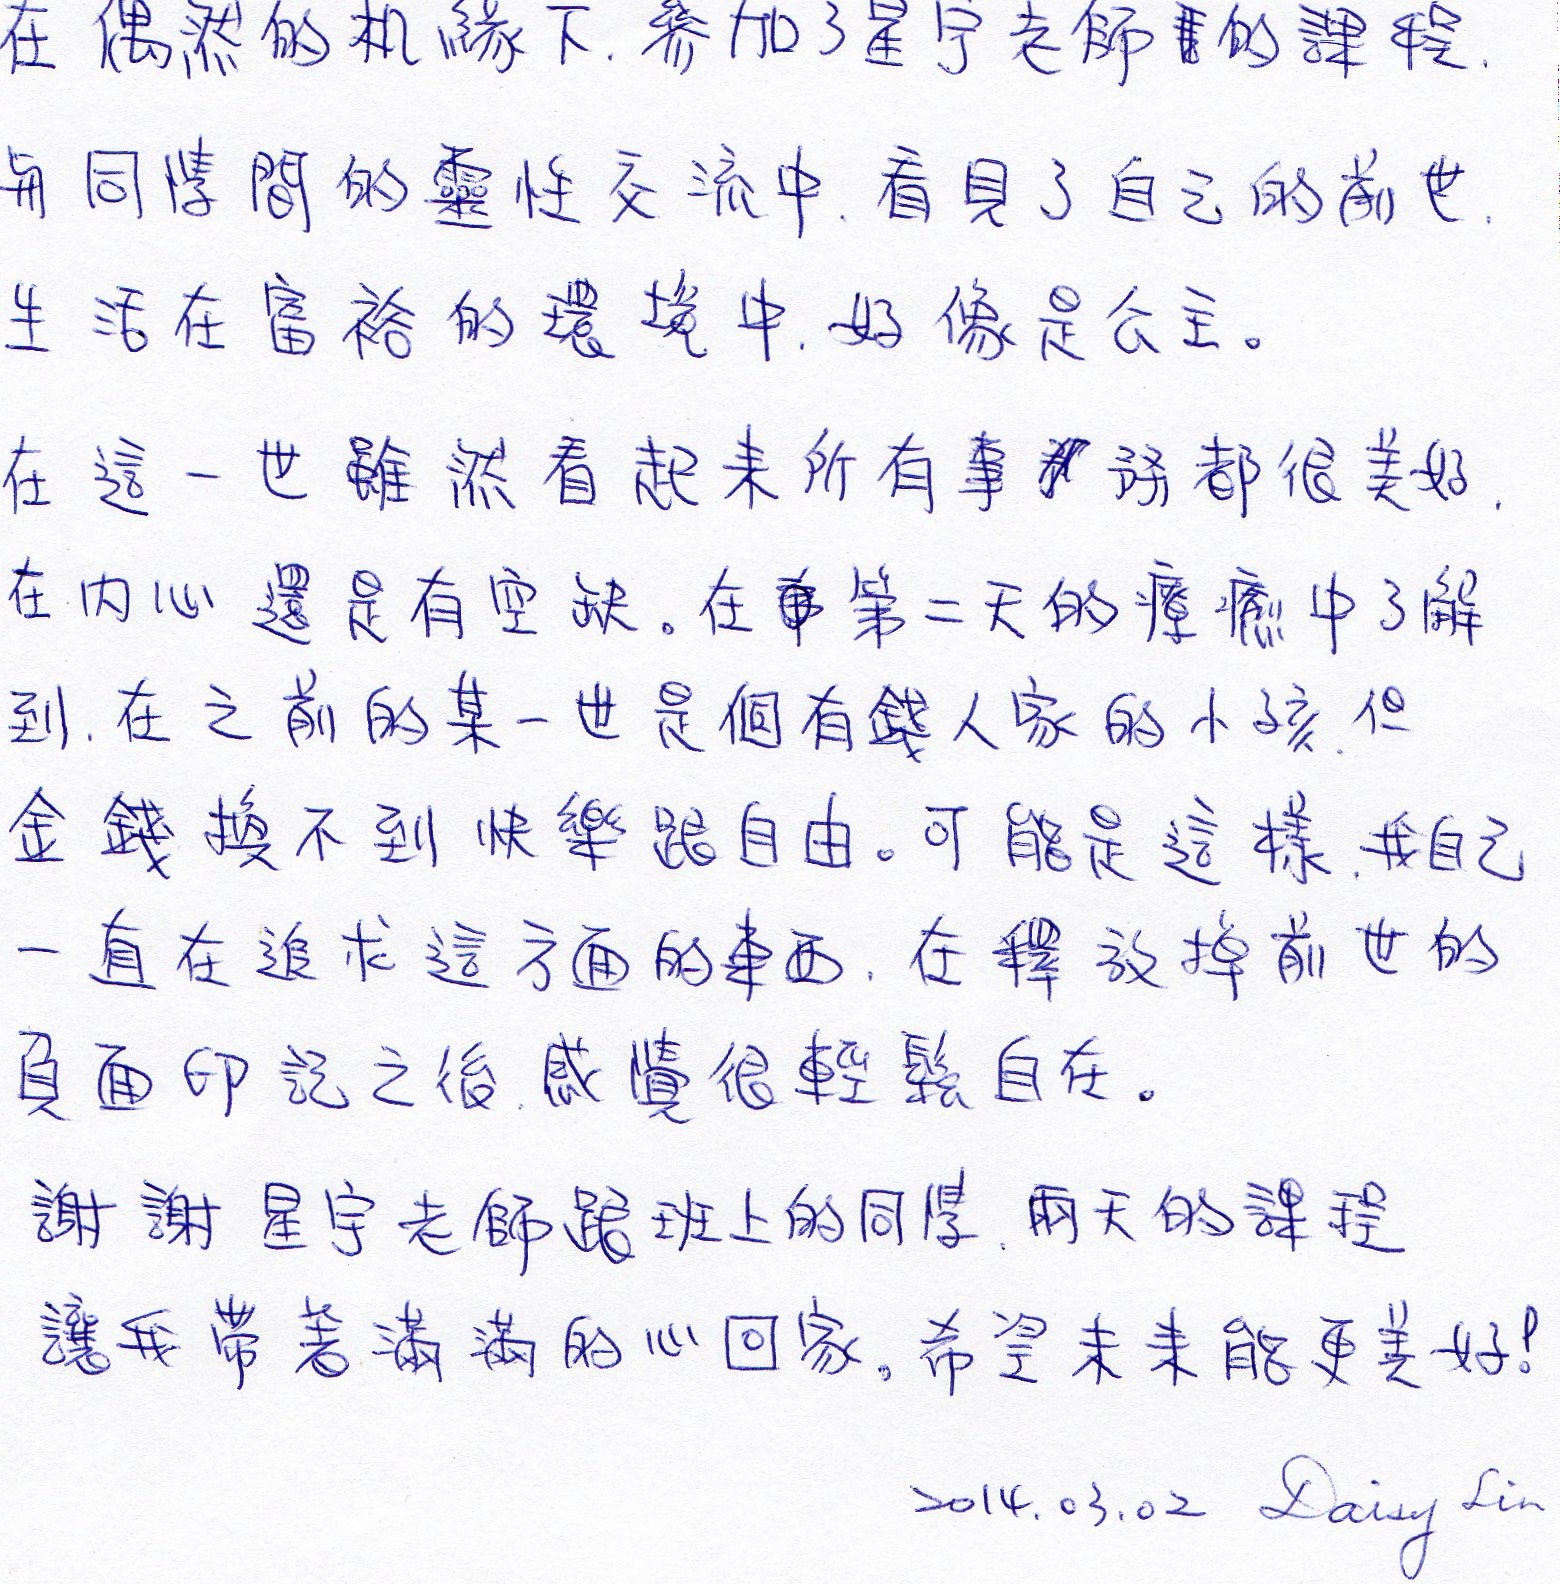 在偶然的机緣下.參加了星宇老師的課程.
与同學間的靈性交流中.看見了自己的前世.
生活在富裕的環境中.好像是公主。
在這一世雖然看起來所有事務都很美好.
在内心還是有空缺。在第二天的療癒中了解
到.在之前的某一世是個有錢人家的小孩.但
金錢換不到快樂跟自由。可能是這樣.我自己
一直在追求這方面的東西.在釋放掉前世的
負面印記之後.感覺很輕鬆自在。
謝謝星宇老師跟班上的同學.兩天的課程
讓我帶著滿滿的心回家。希望未來能更美好!
2014.03.02 Daisy Lin